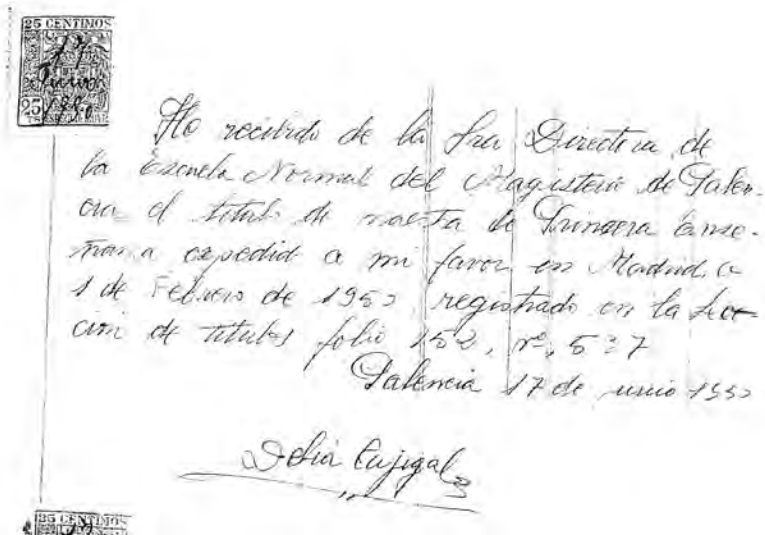 25 CENTIMOS
17
Junio
25
He recibido de la Sra Directora de
la Escuela Normal del Magisterio de Palen-
cia el titulo de maestra de Primera Ense-
ñanza expedido a mi favor en Madrid a
1 de Febrero de 195 registrado en la Sec-
cion de titulos folio 152, nº
Palencia 17 de junio 195
Delia Cujigal
25 CENTIMOS